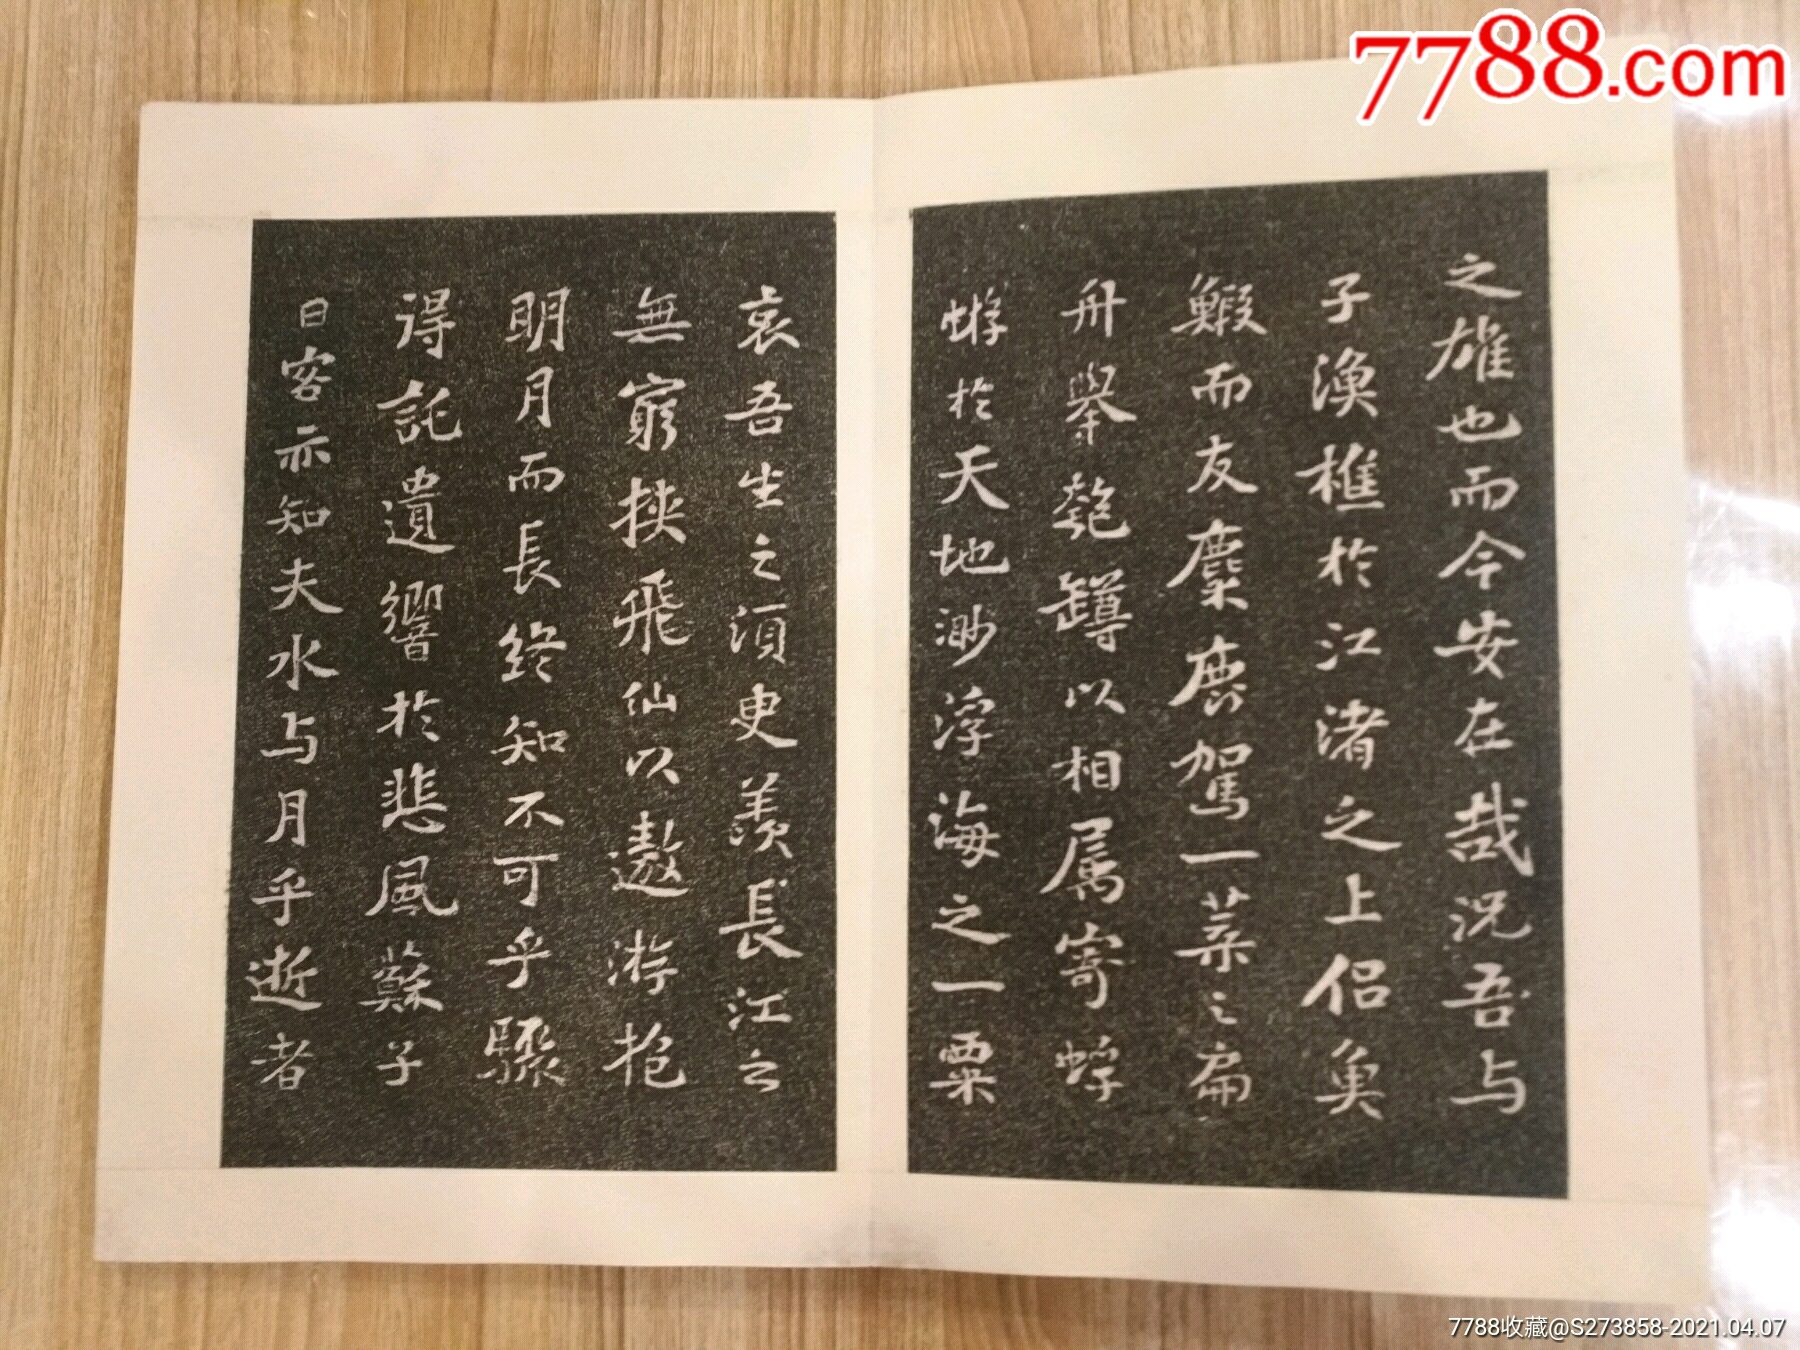 7788.com
之雄也而今安在哉況吾与
子漁樵於江渚之上侶魚
鰕而友麋鹿駕一葉之扁
舟舉匏罇以相属寄蜉
蝣於天地渺浮海之一粟
哀吾生之須臾羨長江之
無窮挾飛仙以遨游抱
明月而長終知不可乎驟
得託遺響於悲風蘇子
曰客亦知夫水与月乎逝者
7788收藏@S273858-2021.04.07